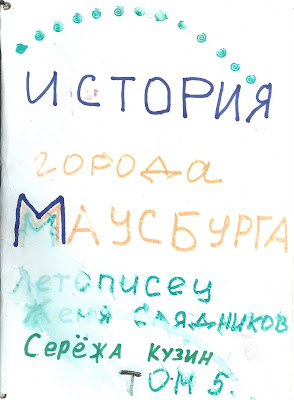 ИСТОРИЯ
города
МАУСБУРГА
Летописец
Женя САЯДНИКОВ
СЕРЁЖА КУЗИН
ТОМ 5.